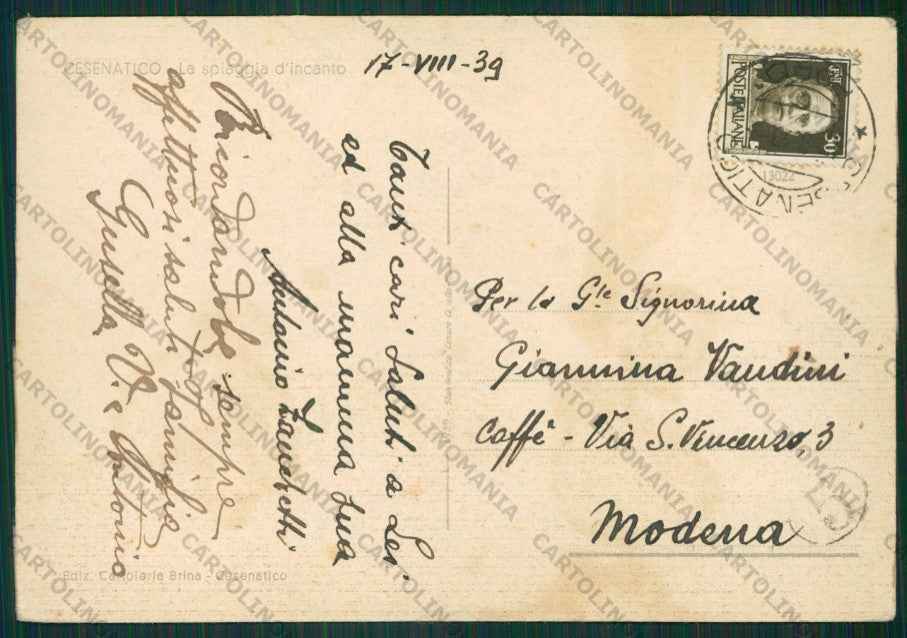 CESENATICO - La spiaggia d'incanto
17-VIII-39
Tanti cari saluti a Lei
ed alla mamma sua
Antonio Zanetti
Ricordandola sempre
affettuosi saluti famiglia
Gusella V. e Antonio
Per la G.le Signorina
Giannina Vandini
Caffè - Via S. Vincenzo, 3
Modena
POSTE ITALIANE
30
CESENATICO
13022
57
Ediz. Cartoleria Brina - Cesenatico
CARTOLINOMANIA